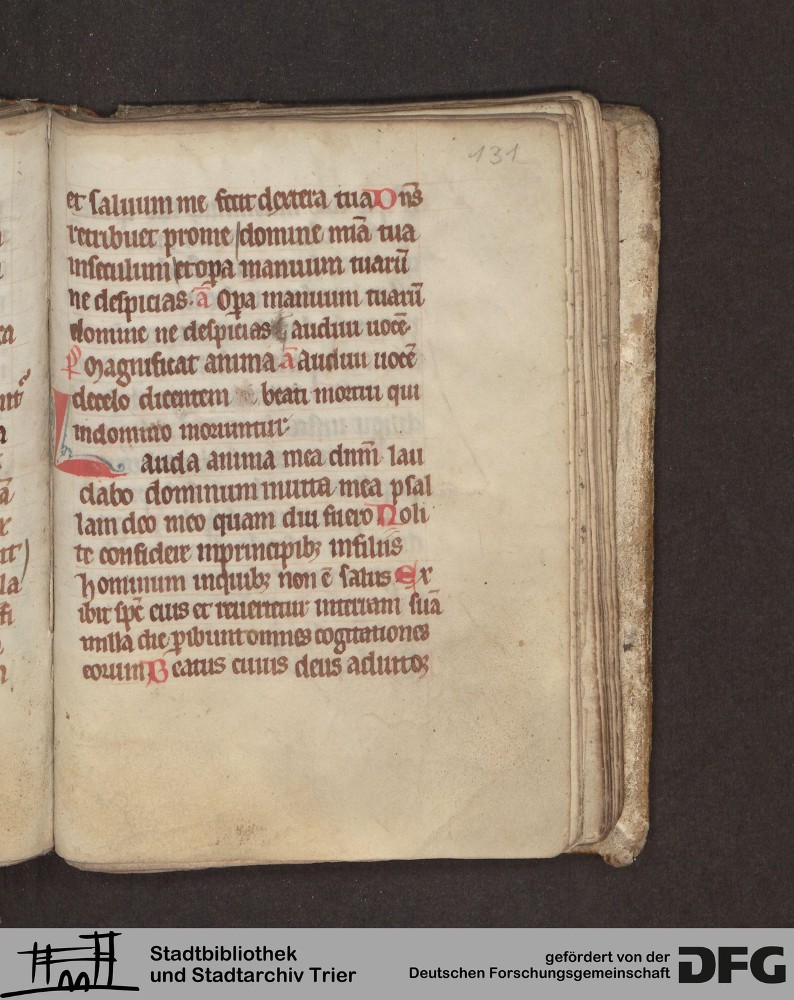 131
et saluum me fecit dextera tua Dn̄s
retribuet prome domine mīa tua
inseculum et oꝑa manuum tuarū
ne despicias. ā Oꝑa manuum tuarū
domine ne despicias audiui uocē
Magnificat anima ā audiui uocē
decelo dicentem beati mortui qui
indomino moriuntur
Lauda anima mea dnm̄ lau
dabo dominum inuita mea psal
lam deo meo quam diu fuero Noli
te confidere inprincipibꝫ infiliis
hominum inquibꝫ non ē salus Ex
ibit spc̄ eius et reuertetur interram suā
inilla die ꝑibunt omnes cogitationes
eorum Beatus cuius deus adiutoꝫ
Stadtbibliothek
und Stadtarchiv Trier
gefördert von der
Deutschen Forschungsgemeinschaft
DFG